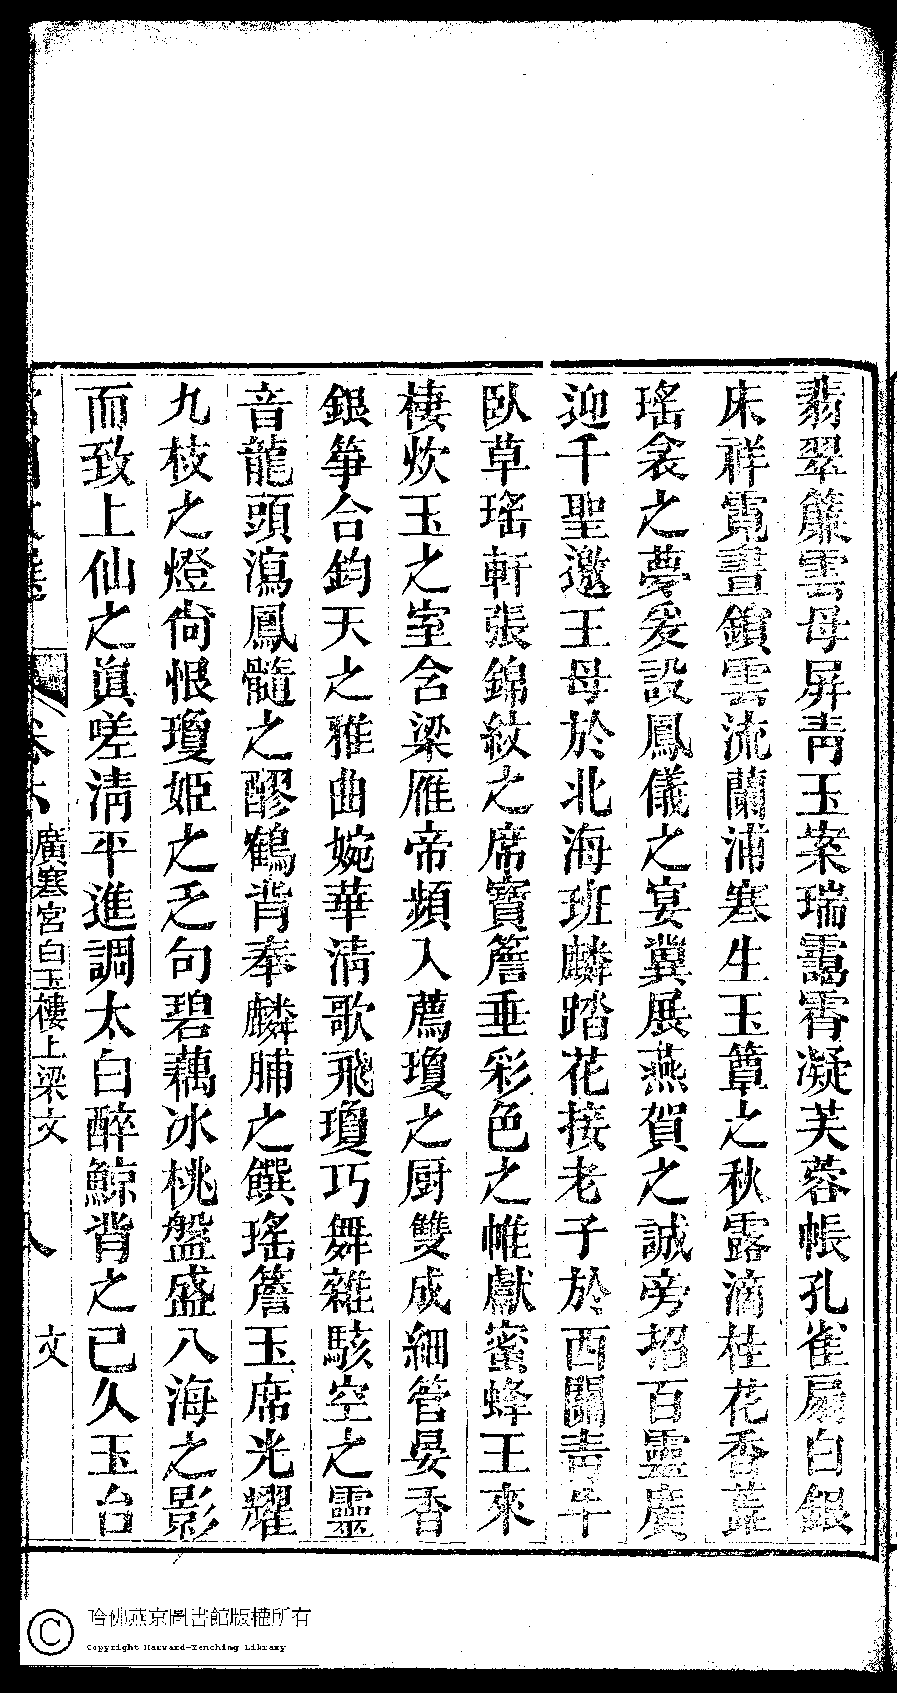 翡翠簾雲母屏靑玉案瑞靄霄凝芙蓉帳孔雀扇白銀
床祥霓晝鎖雲流蘭浦寒生玉簟之秋露滴桂花香薤
瑤衾之夢爰設鳳儀之宴冀展燕賀之誠旁招百靈廣
迎千聖邀王母於北海班麟踏花接老子於西關青牛
臥草瑤軒張錦紋之席寶簷垂彩色之帷獻蜜蜂王來
棲炊玉之室含梁雁帝頻入薦瓊之厨雙成細管晏香
銀箏合鈞天之雅曲婉華淸歌飛瓊巧舞雜駭空之靈
音龍頭瀉鳳髓之醪鶴背奉麟脯之饌瑤簷玉席光耀
九枝之燈尙恨瓊姬之乏句碧藕冰桃盤盛八海之影
而致上仙之眞嗟淸平進調太白醉鯨背之已久玉台
卷六 廣寒宮白玉樓上梁文 文
哈佛燕京圖書館版權所有
Copyright Harvard-Yenching Library